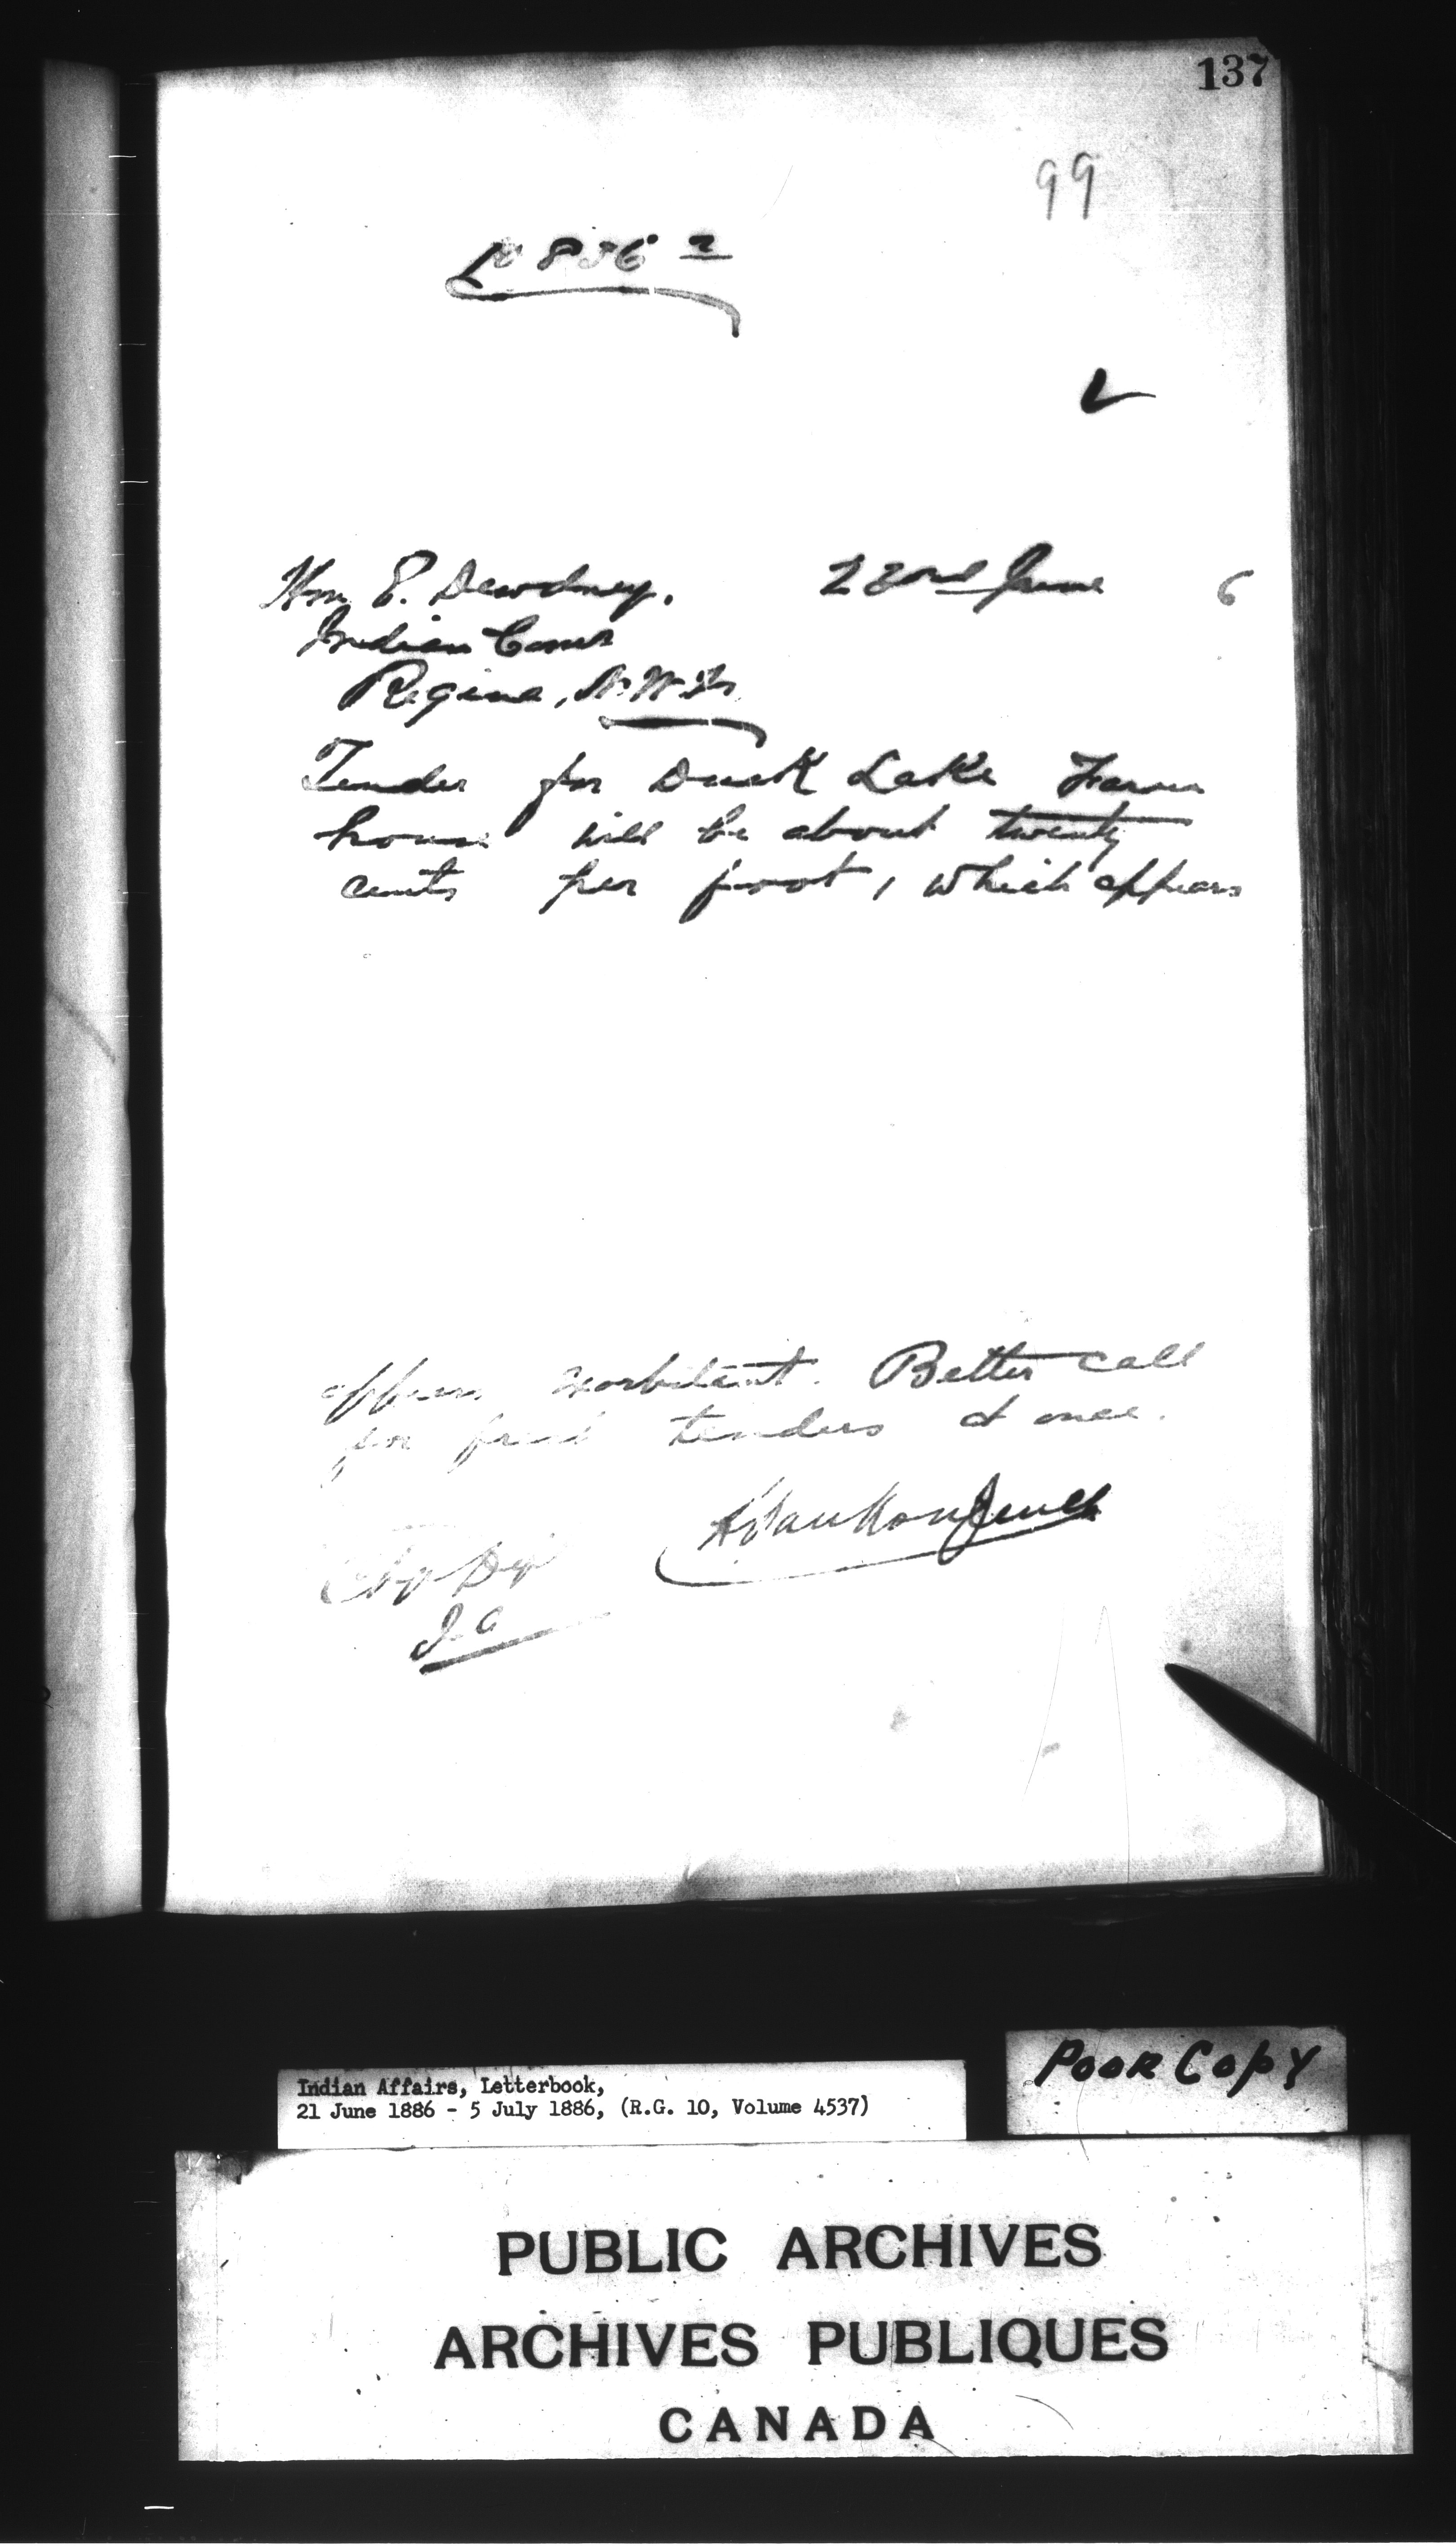 137
99
Hon E. Dewdney, 22nd June 6
Indian Comr
Regina, N.W.Ts
Tender for Duck Lake Farm
house will be about twenty
cents per foot, which appears
appears exorbitant. Better call
for fresh tenders at once.
L. VanKoughnet
Chg Dept
I. A
Indian Affairs, Letterbook,
21 June 1886 - 5 July 1886, (R.G. 10, Volume 4537)
POOR COPY
PUBLIC ARCHIVES
ARCHIVES PUBLIQUES
CANADA